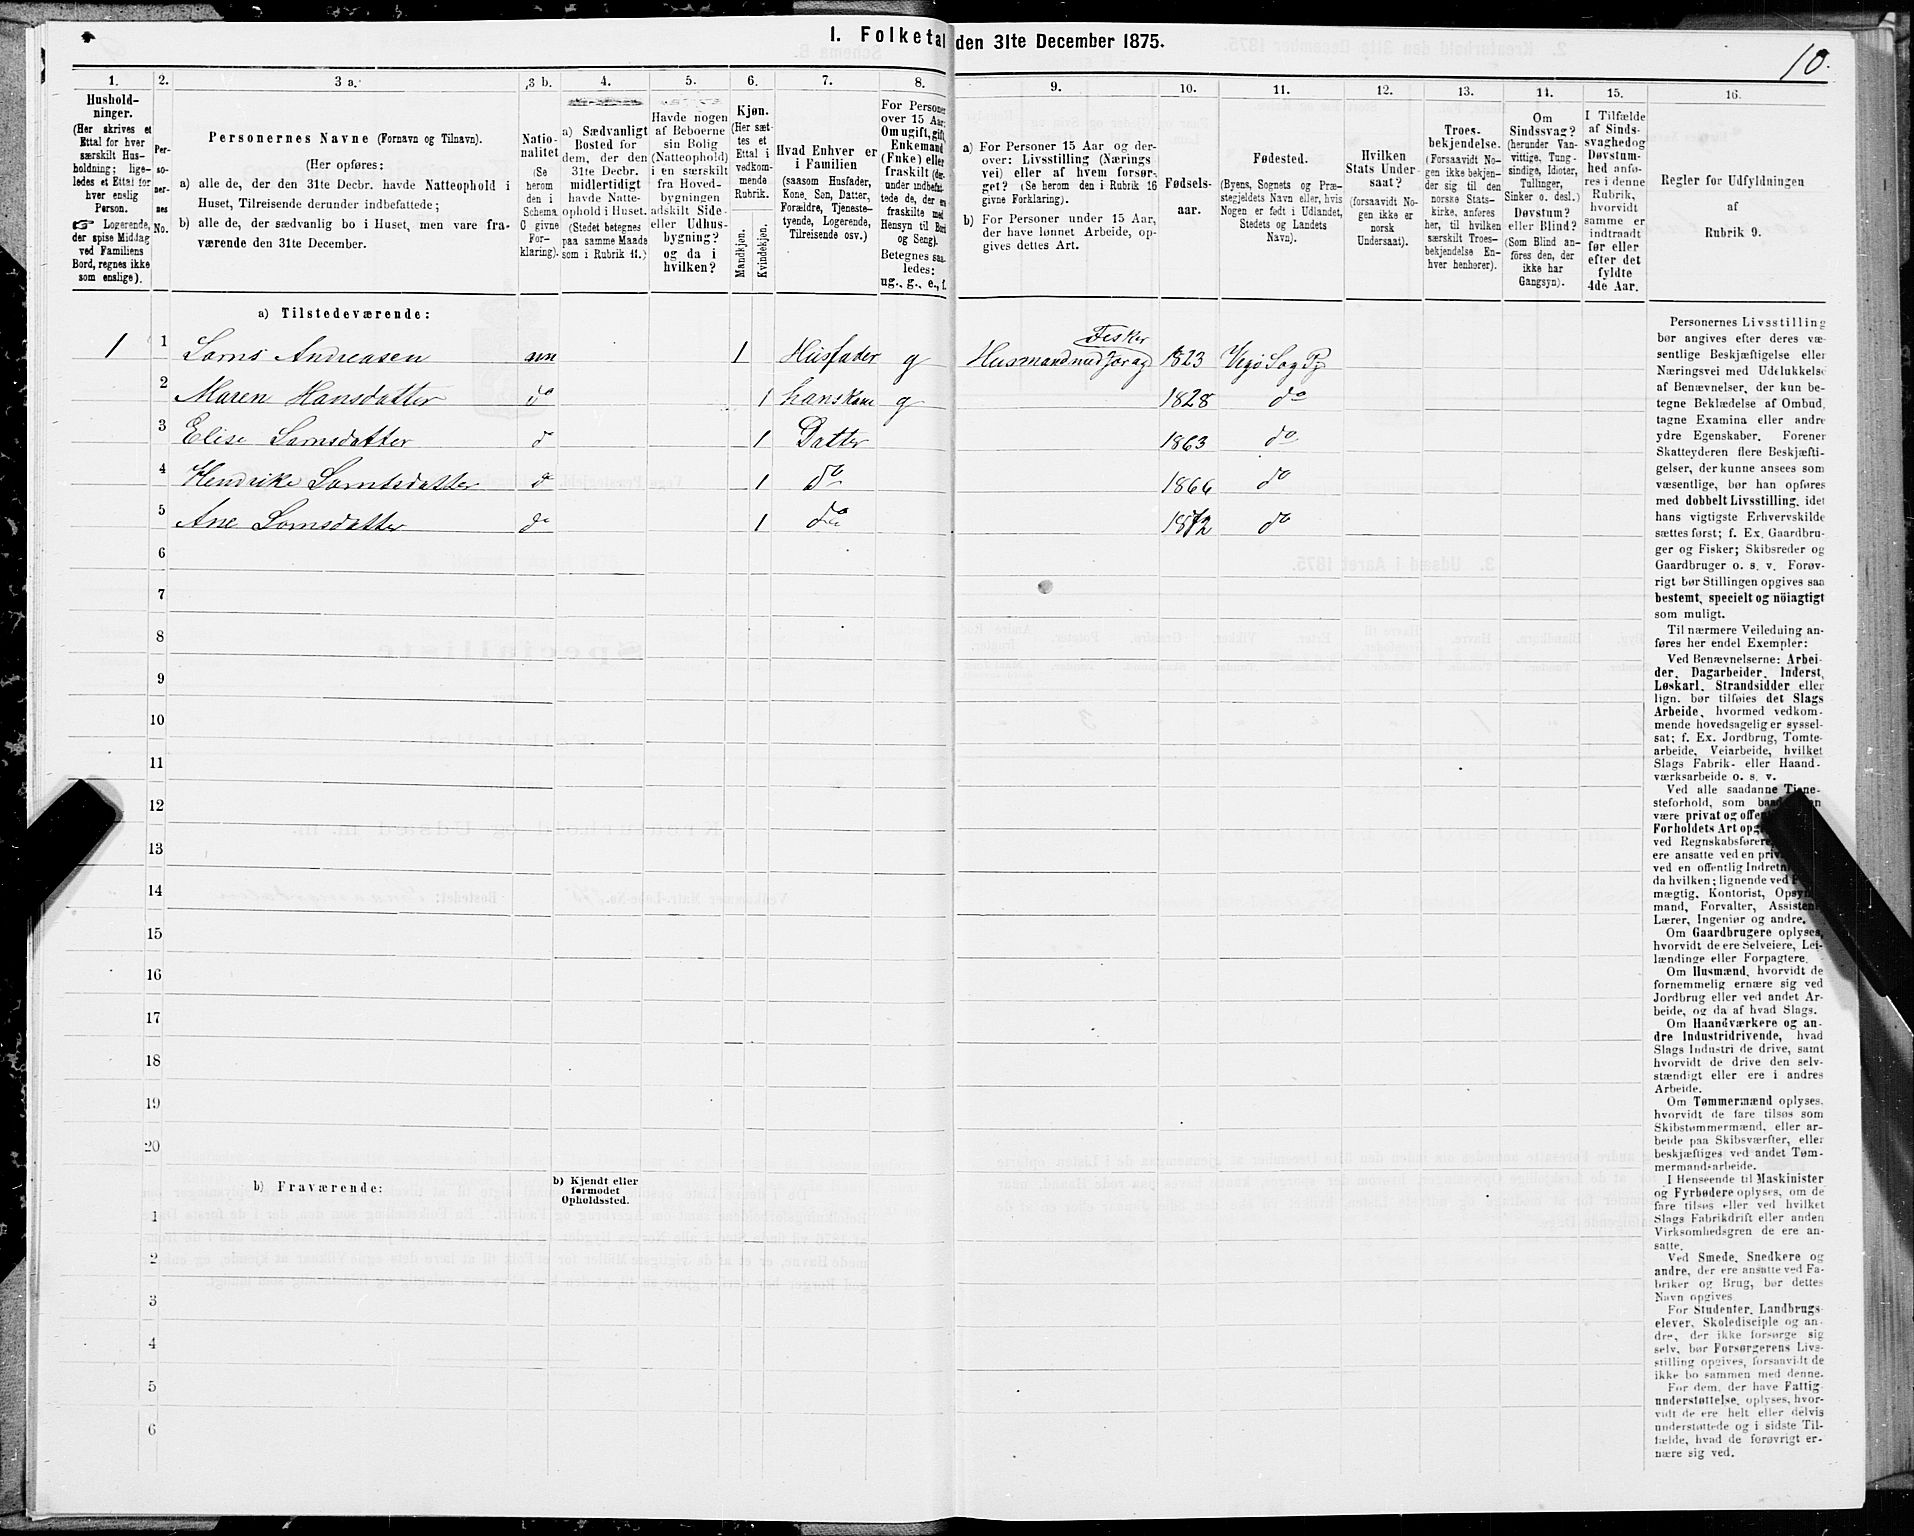 I. Folketal den 31te December 1875.
10.
1.
Hushold-
ninger.
(Her skrives et
Ettal for hver
særskilt Hus-
holdning; lige-
ledes et Ettal for
hver enslig
Person.
☞ Logerende,
der spise Middag
ved Familiens
Bord, regnes ikke
som enslige).
2.
Per-
so-
ner-
nes
No.
3 a.
Personernes Navne (Fornavn og Tilnavn).
(Her opføres:
a) alle de, der den 31te Decbr. havde Natteophold i
Huset, Tilreisende derunder indbefattede;
b) alle de, der sædvanlig bo i Huset, men vare fra-
værende den 31te December.
3 b.
Natio-
nalitet
(Se
herom
den i
Schema
G givne
For-
klaring).
4.
a) Sædvanligt
Bosted for
dem, der den
31te Decbr.
midlertidigt
havde Natte-
ophold i Huset.
(Stedet betegnes
paa samme Maade
som i Rubrik 11.)
5.
Havde nogen
af Beboerne
sin Bolig
(Natteophold)
i en særskilt
fra Hoved-
bygningen
adskilt Side-
eller Udhus-
bygning?
og da i
hvilken?
6.
Kjøn.
(Her sæt-
tes et
Ettal i
vedkom-
mende
Rubrik.
Mandkjøn.
Kvindekjøn.
7.
Hvad Enhver er
i Familien
(saasom Husfader,
Kone, Søn, Datter,
Forældre, Tjeneste-
tyende, Logerende,
Tilreisende osv.)
8.
For Personer
over 15 Aar:
Om ugift, gift,
Enkemand
(Enke) eller
fraskilt (der-
under indbefat-
tede de, der ere
fraskilte med
Hensyn til Bord
og Seng).
Betegnes saa-
ledes:
ug., g., e., f.
9.
a) For Personer 15 Aar og der-
over: Livsstilling (Nærings
vei) eller af hvem forsør-
get? (Se herom den i Rubrik 16
givne Forklaring).
b) For Personer under 15 Aar,
der have lønnet Arbeide, op-
gives dettes Art.
10.
Fødsels-
aar.
11.
Fødested.
(Byens, Sognets og Præ-
stegjeldets Navn eller, hvis
Nogen er født i Udlandet,
Stedets og Landets
Navn).
12.
Hvilken
Stats Under
saat?
(forsaavidt No-
gen ikke er
norsk
Undersaat).
13.
Troes-
bekjendelse.
(Forsaavidt No-
gen ikke bekjen-
der sig til den
norske Stats-
kirke, anføres
her, til hvilken
særskilt Troes-
bekjendelse En-
hver henhører).
14.
Om
Sindssvag?
(herunder Van-
vittige, Tung-
sindige, Idioter,
Tullinger,
Sinker o. desl.)
Døvstum?
eller Blind?
(Som Blind an-
føres den, der
ikke har
Gangsyn).
15.
I Tilfælde
af Sinds-
svaghed og
Døvstum-
hed anfø-
res i denne
Rubrik,
hvorvidt
samme er
indtraadt
før eller
efter det
fyldte
4de Aar.
16.
Regler for Udfyldningen
af
Rubrik 9.
a) Tilstedeværende:
1 1 Lorns Andreasen nn 1 Husfader g Husmand med Jorag Fisker 1823 Vegø Sog Pg
2 Maren Hansdatter do 1 hans Kone g 1828 do
3 Elise Lornsdatter d 1 Datter 1863 do
4 Hendrike Lorntsdatter do 1 do 1866 do
5 Ane Lornsdatter do 1 do 1872 do
6
7
8
9
10
11
12
13
14
15
16
17
18
19
20
b) Fraværende:
b) Kjendt eller
formodet
Opholdssted.
1
2
3
4
5
6
Personernes Livsstilling
bør angives efter deres væ-
sentlige Beskjæftigelse eller
Næringsvei med Udelukkelse
af Benævnelser, der kun be-
tegne Beklædelse af Ombud,
tagne Examina eller andre
ydre Egenskaber. Forener
Skatteyderen flere Beskjæfti-
gelser, der kunne ansees som
væsentlige, bør han opføres
med dobbelt Livsstilling, idet
hans vigtigste Erhvervskilde
sættes først; f. Ex. Gaardbru-
ger og Fisker; Skibsreder og
Gaardbruger o. s. v. Forøv-
rigt bør Stillingen opgives saa
bestemt, specielt og nöiagtigt
som muligt.
Til nærmere Veiledning an-
føres her endel Exempler:
Ved Benævnelserne: Arbei-
der, Dagarbeider, Inderst,
Løskarl, Strandsidder eller
lign. bør tilføies det Slags
Arbeide, hvormed vedkom-
mende hovedsagelig er syssel-
sat; f. Ex. Jordbrug, Tomte-
arbeide, Veiarbeide, hvilket
Slags Fabrik- eller Haand-
værksarbeide o. s. v.
Ved alle saadanne Tjene-
steforhold, som
være privat og
Forholdets Art
ved Regnskabsførere,
ere ansatte ved en
ved en offentlig
da hvilken; lignende ved
mægtig, Kontorist,
mand, Forvalter,
Lærer, Ingeniør og andre.
Om Gaardbrugere oplyses,
hvorvidt de ere Selveiere, Lei-
lændinge eller Forpagtere.
Om Husmænd, hvorvidt de
fornemmelig ernære sig ved
Jordbrug eller ved andet Ar-
beide, og da af hvad Slags.
Om Haandværkere og an-
dre Industridrivende, hvad
Slags Industri de drive, samt
hvorvidt de drive den selv-
stændigt eller ere i andres
Arbeide.
Om Tømmermænd oplyses,
hvorvidt de fare tilsøs som
Skibstømmermænd, eller ar-
beide paa Skibsværfter, eller
beskjæftiges ved andet Tøm-
mermandsarbeide.
I Henseende til Maskinister
og Fyrbødere oplyses, om de
fare tilsøs eller ved hvilket
Slags Fabrikdrift eller anden
Virksomhedsgren de ere an-
satte.
Ved Smede, Snedkere og
andre, der ere ansatte ved Fa-
briker og Brug, bør dettes
Navn opgives.
For Studenter, Landbrugs-
elever, Skoledisciple og an-
dre, der ikke forsørge sig
selv, bør Forsørgerens Livs-
stilling opgives, forsaavidt de
ikke bo sammen med denne.
For dem, der have Fattig-
understøttelse, oplyses, hvor-
vidt de ere helt eller delvis
understøttede og i sidste Til-
fælde, hvad de forøvrigt er-
nære sig ved.